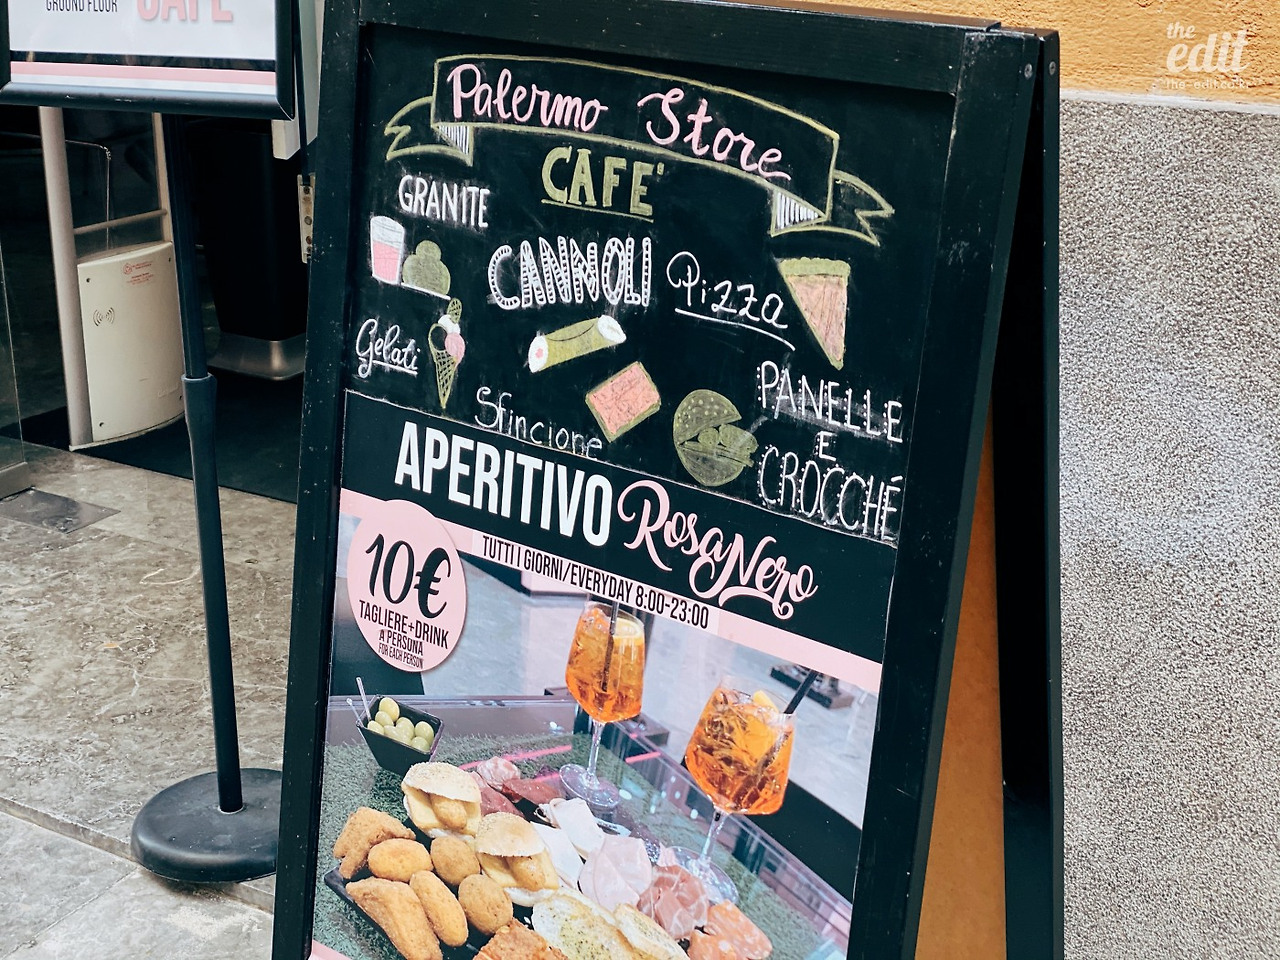 GROUND FLOOR
CAFÈ
the
edit
the-edit.co.kr
Palermo Store
CAFE'
GRANITE
CANNOLI
Pizza
Gelati
Sfincione
PANELLE
E
CROCCHÉ
APERITIVO RosaNero
TUTTI I GIORNI/EVERYDAY 8:00-23:00
10€
TAGLIERE+DRINK
A PERSONA
FOR EACH PERSON